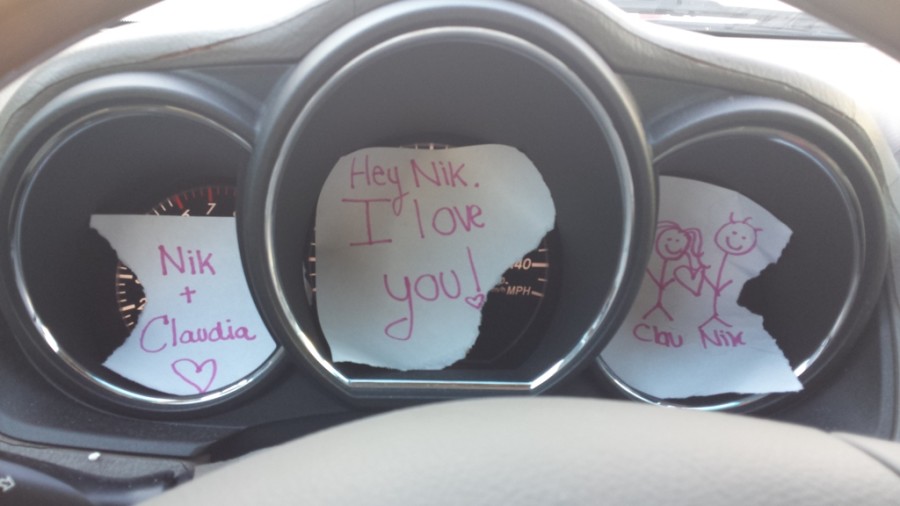 7
Nik
+
Claudia
Hey Nik.
I love
you!
40
MPH
Clau Nik